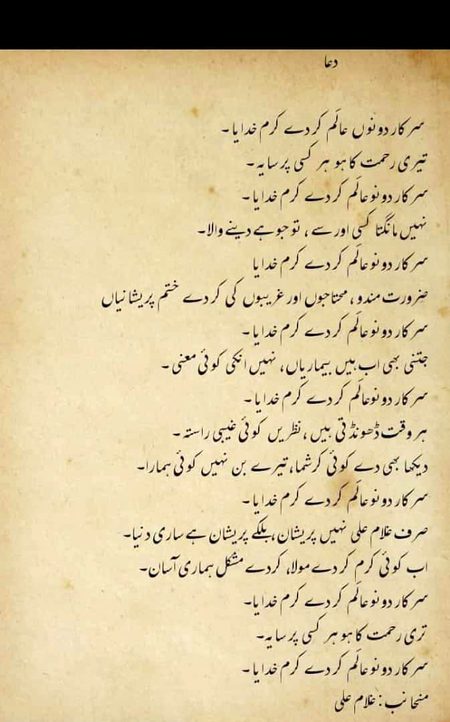 دعا
سرکار دونوں عالَم کر دے کرم خدایا۔
تیری رحمت کا ہو ہر کسی پر سایہ۔
سرکار دونو عالَم کر دے کرم خدایا۔
نہیں مانگتا کسی اور سے ، تو جو ہے دینے والا۔
سرکار دونو عالَم کر دے کرم خدایا
ضرورت مندو ، محتاجوں اور غریبوں کی کر دے ختم پریشانیاں
سرکار دونو عالَم کر دے کرم خدایا۔
جتنی بھی اب ہیں بیماریاں، نہیں انکی کوئی معنی۔
سرکار دونو عالَم کر دے کرم خدایا۔
ہر وقت ڈھونڈتی ہیں ، نظریں کوئی غیبی راستہ۔
دیکھا بھی دے کوئی کرشما، تیرے بن نہیں کوئی ہمارا۔
سرکار دونو عالَم کر دے کرم خدایا۔
صرف غلام علی نہیں پریشان، بلکے پریشان ہے ساری دنیا۔
اب کوئی کرم کر دے مولا، کردے مشکل ہماری آسان۔
سرکار دونو عالَم کر دے کرم خدایا۔
تری رحمت کا ہو ہر کسی پر سایہ۔
سرکار دونو عالَم کر دے کرم خدایا۔
منجانب : غلام علی